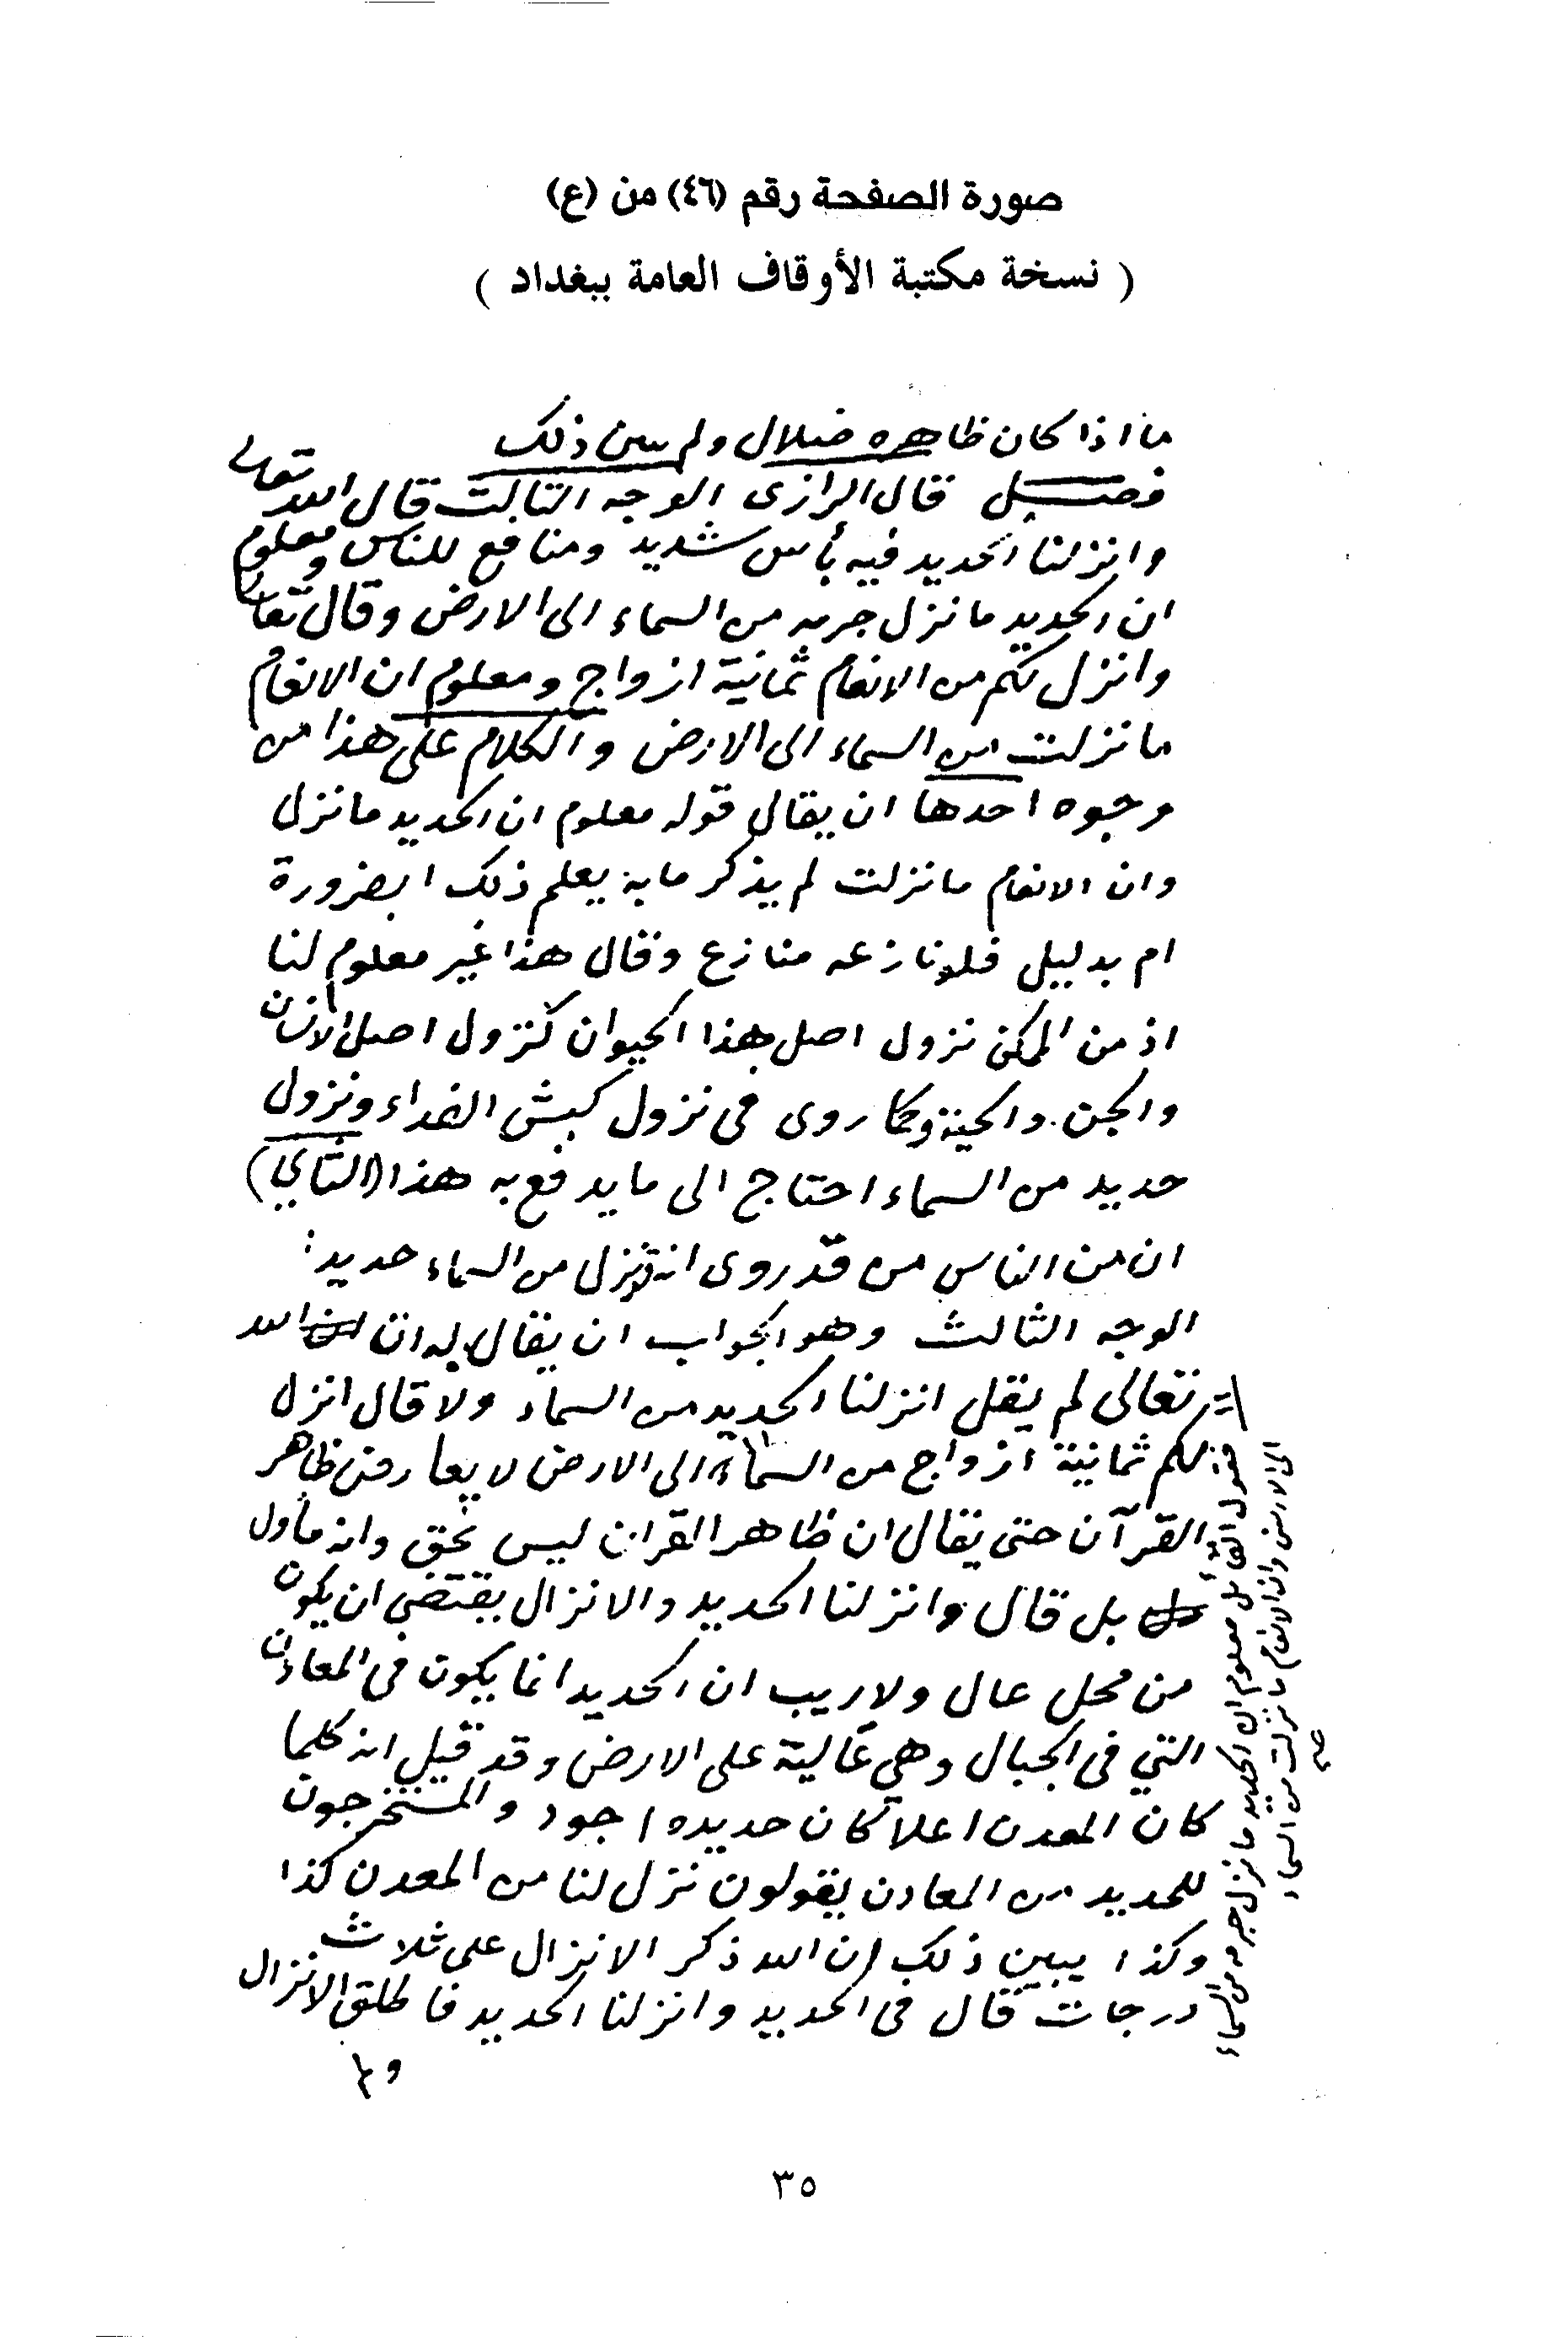 صورة الصفحة رقم (٤٦) من (ع)
( نسخة مكتبة الأوقاف العامة ببغداد )
ما اذا كان ظاهره ضلال ولم يبين ذلك
فصــل قال الرازى الوجه الثالث قال الله تعالى
وانزلنا الحديد فيه بأس شديد ومنافع للناس ومعلوم
ان الحديد ما نزل جرمه من السماء الى الارض وقال تعالى
وانزل لكم من الانعام ثمانية ازواج ومعلوم ان الانعام
ما نزلت من السماء الى الارض والكلام على هذا من
وجوه احدها ان يقال قوله معلوم ان الحديد ما نزل
وان الانعام ما نزلت لم يذكر ما به يعلم ذلك ابضرورة
ام بدليل فلو نازعه منازع وقال هذا غير معلوم لنا
اذ من الممكن نزول اصل هذا الحيوان كنزول اصل الانسان
والجن والحية وكما روى فى نزول كبش الفداء ونزول
حديد من السماء احتاج الى ما يدفع به هذا (الثاني)
ان من الناس من قد روى انه نزل من السماء حديد :
الوجه الثالث وهو الجواب ان يقال له ان الله
تعالى لم يقل انزلنا الحديد من السماء ولا قال انزل
لكم ثمانية ازواج من السماء الى الارض لا يعارض ظاهر
القرآن حتى يقال ان ظاهر القران ليس بحق وانه مأول
بل قال وانزلنا الحديد والانزال يقتضى ان يكون
من محل عال ولا ريب ان الحديد انما يكون فى المعادن
التي فى الجبال وهي عالية على الارض وقد قيل انه كلما
كان المعدن اعلا كان حديده اجود والمستخرجون
للحديد من المعادن يقولون نزل لنا من المعدن كذا
وكذا يبين ذلك ان الله ذكر الانزال على ثلاث
درجات قال فى الحديد وانزلنا الحديد فاطلق الانزال
فقول القائل معلوم ان الحديد ما نزل جرمه من السماء
الى الارض وان الانعام ما نزلت من السماء
صح
٣٥